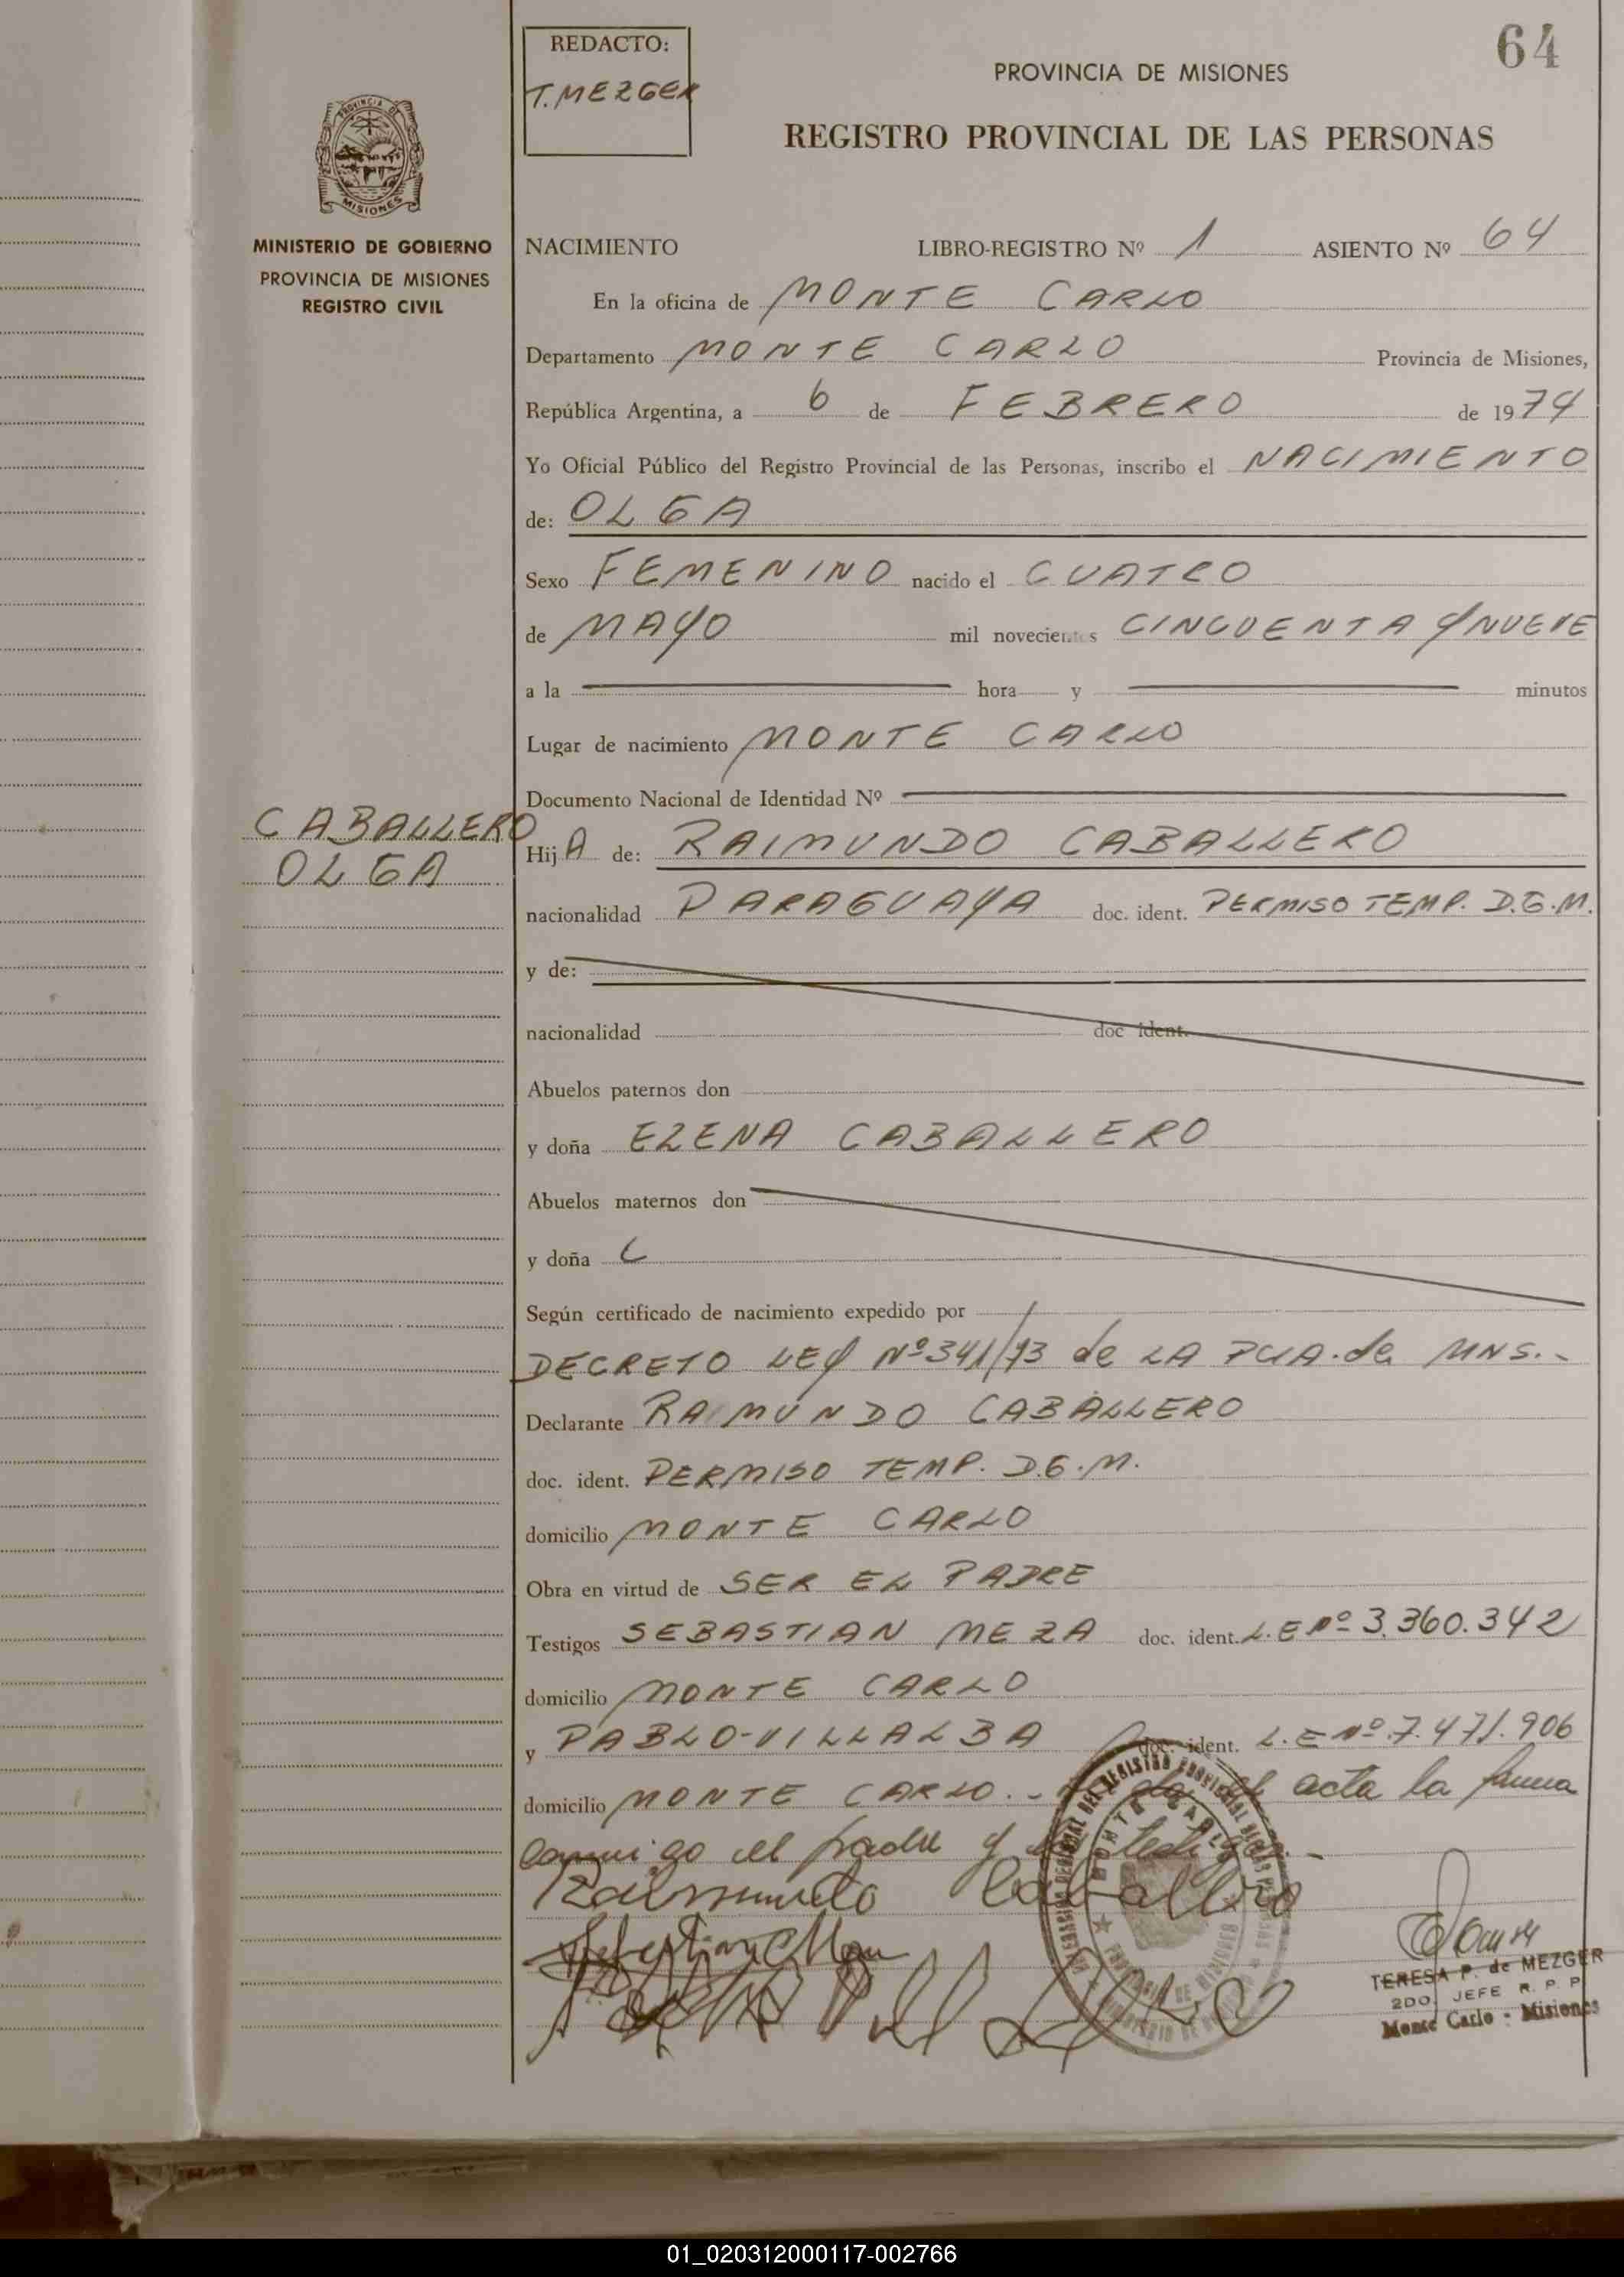 REDACTO:
T. MEZGER
64
PROVINCIA DE MISIONES
REGISTRO PROVINCIAL DE LAS PERSONAS
PROVINCIA DE
MISIONES
MINISTERIO DE GOBIERNO
PROVINCIA DE MISIONES
REGISTRO CIVIL
NACIMIENTO LIBRO-REGISTRO Nº 1 ASIENTO Nº 64
En la oficina de MONTE CARLO
Departamento MONTE CARLO Provincia de Misiones,
República Argentina, a 6 de FEBRERO de 1974
Yo Oficial Público del Registro Provincial de las Personas, inscribo el NACIMIENTO
de: OLGA
Sexo FEMENINO nacido el CUATRO
de MAYO mil novecientos CINCUENTA Y NUEVE
a la hora y minutos
Lugar de nacimiento MONTE CARLO
Documento Nacional de Identidad Nº
CABALLERO
OLGA
HijA de: RAIMUNDO CABALLERO
nacionalidad PARAGUAYA doc. ident. PERMISO TEMP. D.G.M.
y de:
nacionalidad doc ident.
Abuelos paternos don
y doña ELENA CABALLERO
Abuelos maternos don
y doña
Según certificado de nacimiento expedido por
DECRETO LEY Nº 341/73 de LA PCIA. de MNS.-
Declarante RAIMUNDO CABALLERO
doc. ident. PERMISO TEMP. D.G.M.
domicilio MONTE CARLO
Obra en virtud de SER EL PADRE
Testigos SEBASTIAN MEZA doc. ident. L.E Nº 3.360.342
domicilio MONTE CARLO
y PABLO-VILLALBA doc. ident. L.E Nº 7.471.906
domicilio MONTE CARLO.- el acta la firma
conmigo el padre y testigos.-
Raimundo Caballero
Sebastian Meza
TERESA P. de MEZGER
2DO. JEFE R. P. P.
Monte Carlo - Misiones
01_020312000117-002766